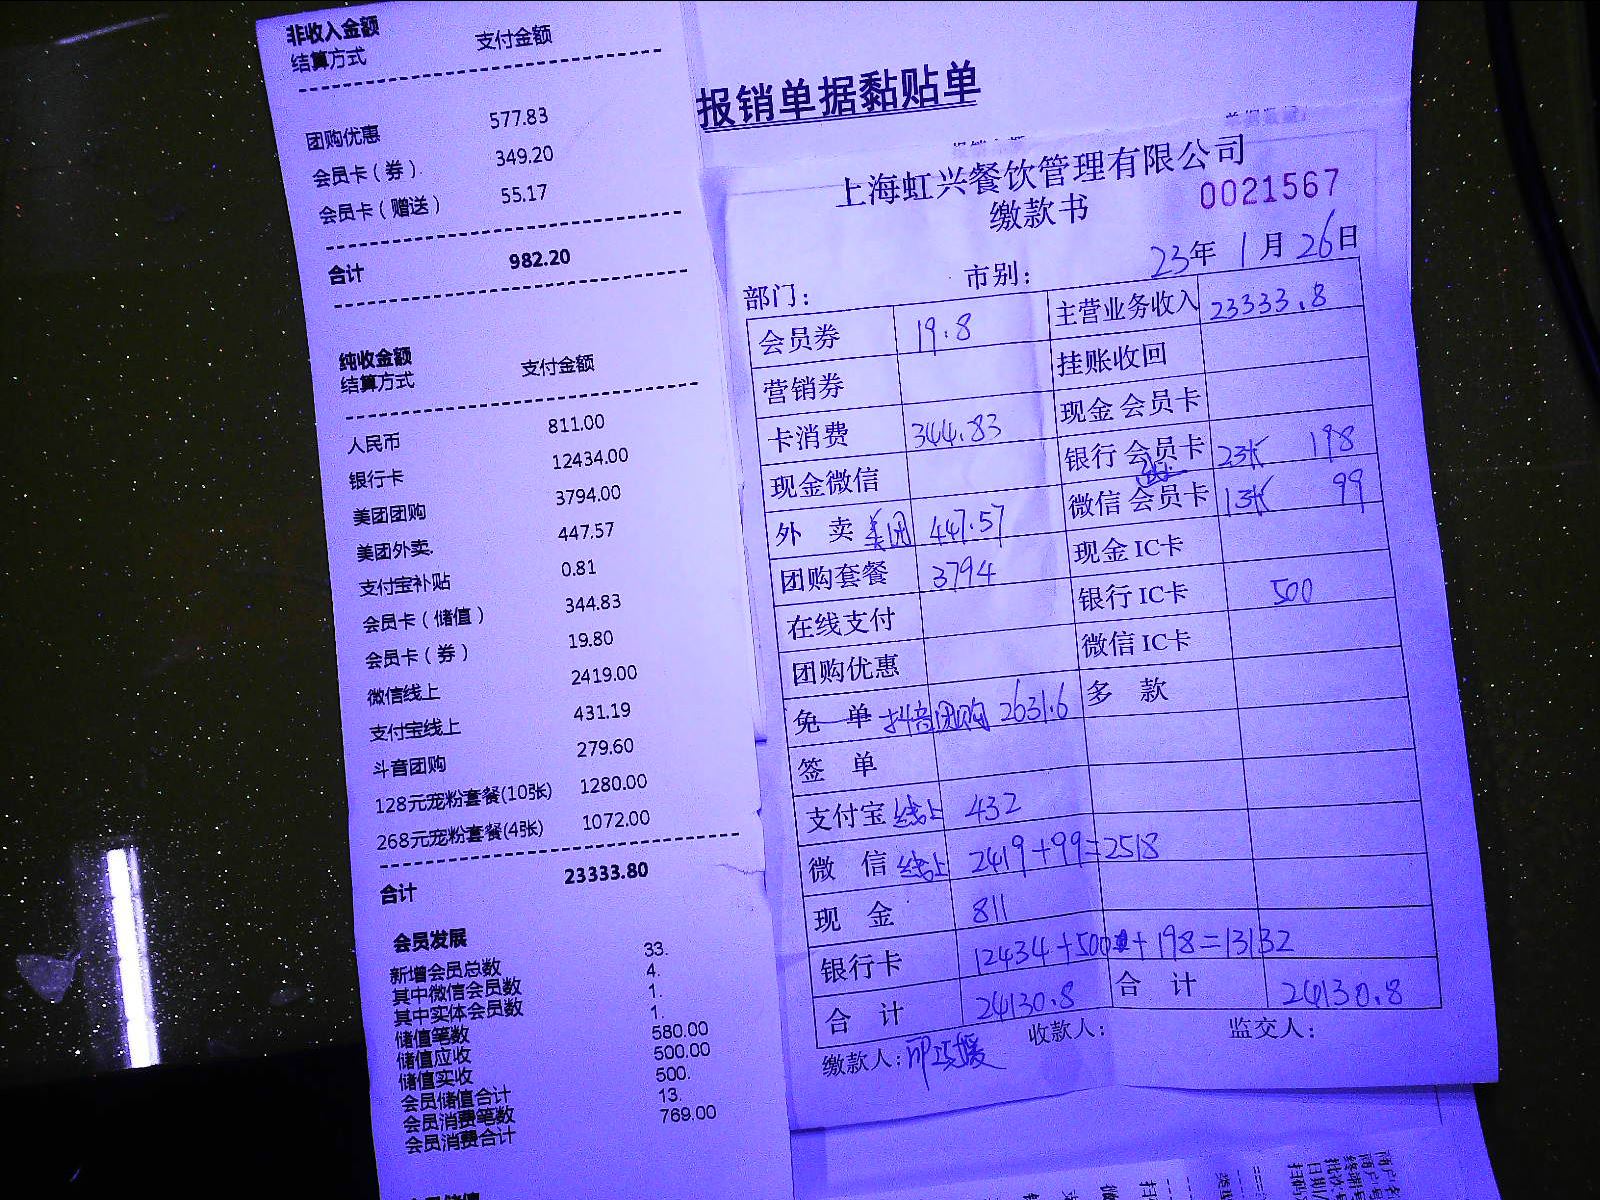 非收入金额
结算方式 支付金额
团购优惠 577.83
会员卡（券） 349.20
会员卡（赠送） 55.17
合计 982.20
纯收金额
结算方式 支付金额
人民币 811.00
银行卡 12434.00
美团团购 3794.00
美团外卖 447.57
支付宝补贴 0.81
会员卡（储值） 344.83
会员卡（券） 19.80
微信线上 2419.00
支付宝线上 431.19
斗音团购 279.60
128元宠粉套餐(10张) 1280.00
268元宠粉套餐(4张) 1072.00
合计 23333.80
会员发展
新增会员总数 33.
其中微信会员数 4.
其中实体会员数 1.
储值笔数 1.
储值应收 580.00
储值实收 500.00
会员储值合计 500.
会员消费笔数 13.
会员消费合计 769.00
报销单据黏贴单
上海虹兴餐饮管理有限公司
缴款书 0021567
23年 1月 26日
部门： 市别：
会员券 19.8 主营业务收入 23333.8
营销券 挂账收回
卡消费 344.83 现金 会员卡
现金微信 银行 会员卡 23张 198
外 卖 美团 447.57 微信 会员卡 13张 99
团购套餐 3794 现金 IC卡
在线支付 银行 IC卡 500
团购优惠 微信 IC卡
免 单 抖音团购 2631.6 多 款
签 单
支付宝 线上 432
微 信 线上 2419+99=2518
现 金 811
银行卡 12434+500+198=13132
合 计 24130.8 合 计 24130.8
缴款人： 收款人： 监交人：